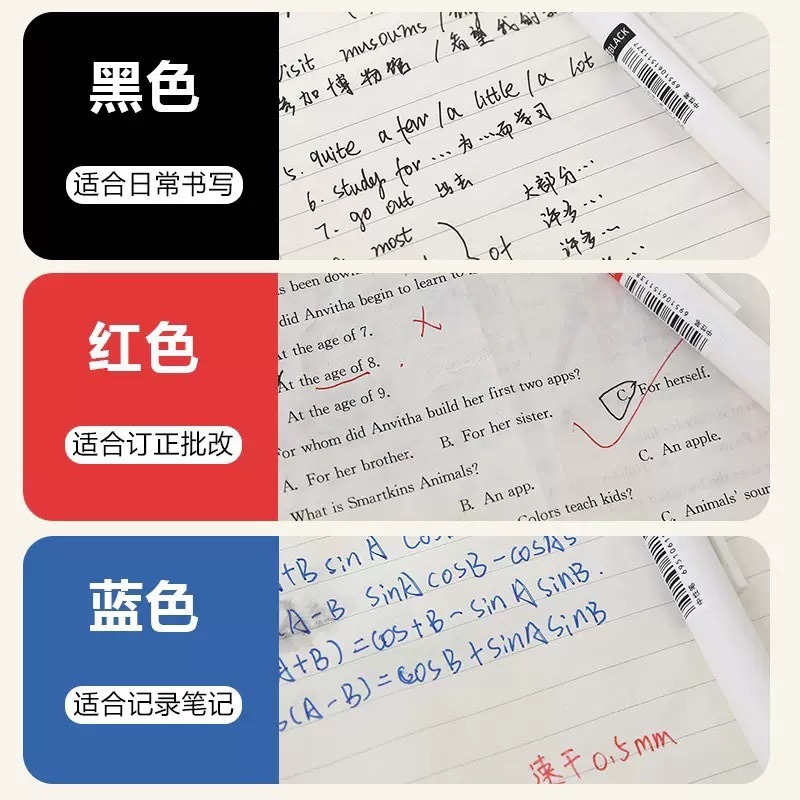 黑色
适合日常书写
visit musoums /
参加博物馆 /希望我们
5. quite a few /a little /a lot
6. study for … 为…而学习
7. go out 出去
most
of
大部分…
许多…
许多…
BLACK
6951061511377
中性笔
红色
适合订正批改
s been down
did Anvitha begin to learn to
At the age of 7.
At the age of 8.
At the age of 9.
For whom did Anvitha build her first two apps?
A. For her brother. B. For her sister. C. For herself.
What is Smartkins Animals?
B. An app. C. An apple.
Colors teach kids?
C. Animals' soun
中性笔
蓝色
适合记录笔记
+B sinA cos
(A-B sinA cosB-cosAs
A+B) =cos+B-sinAsinB.
s(A-B)=cosB+sinAsinB
速干0.5mm
中性笔